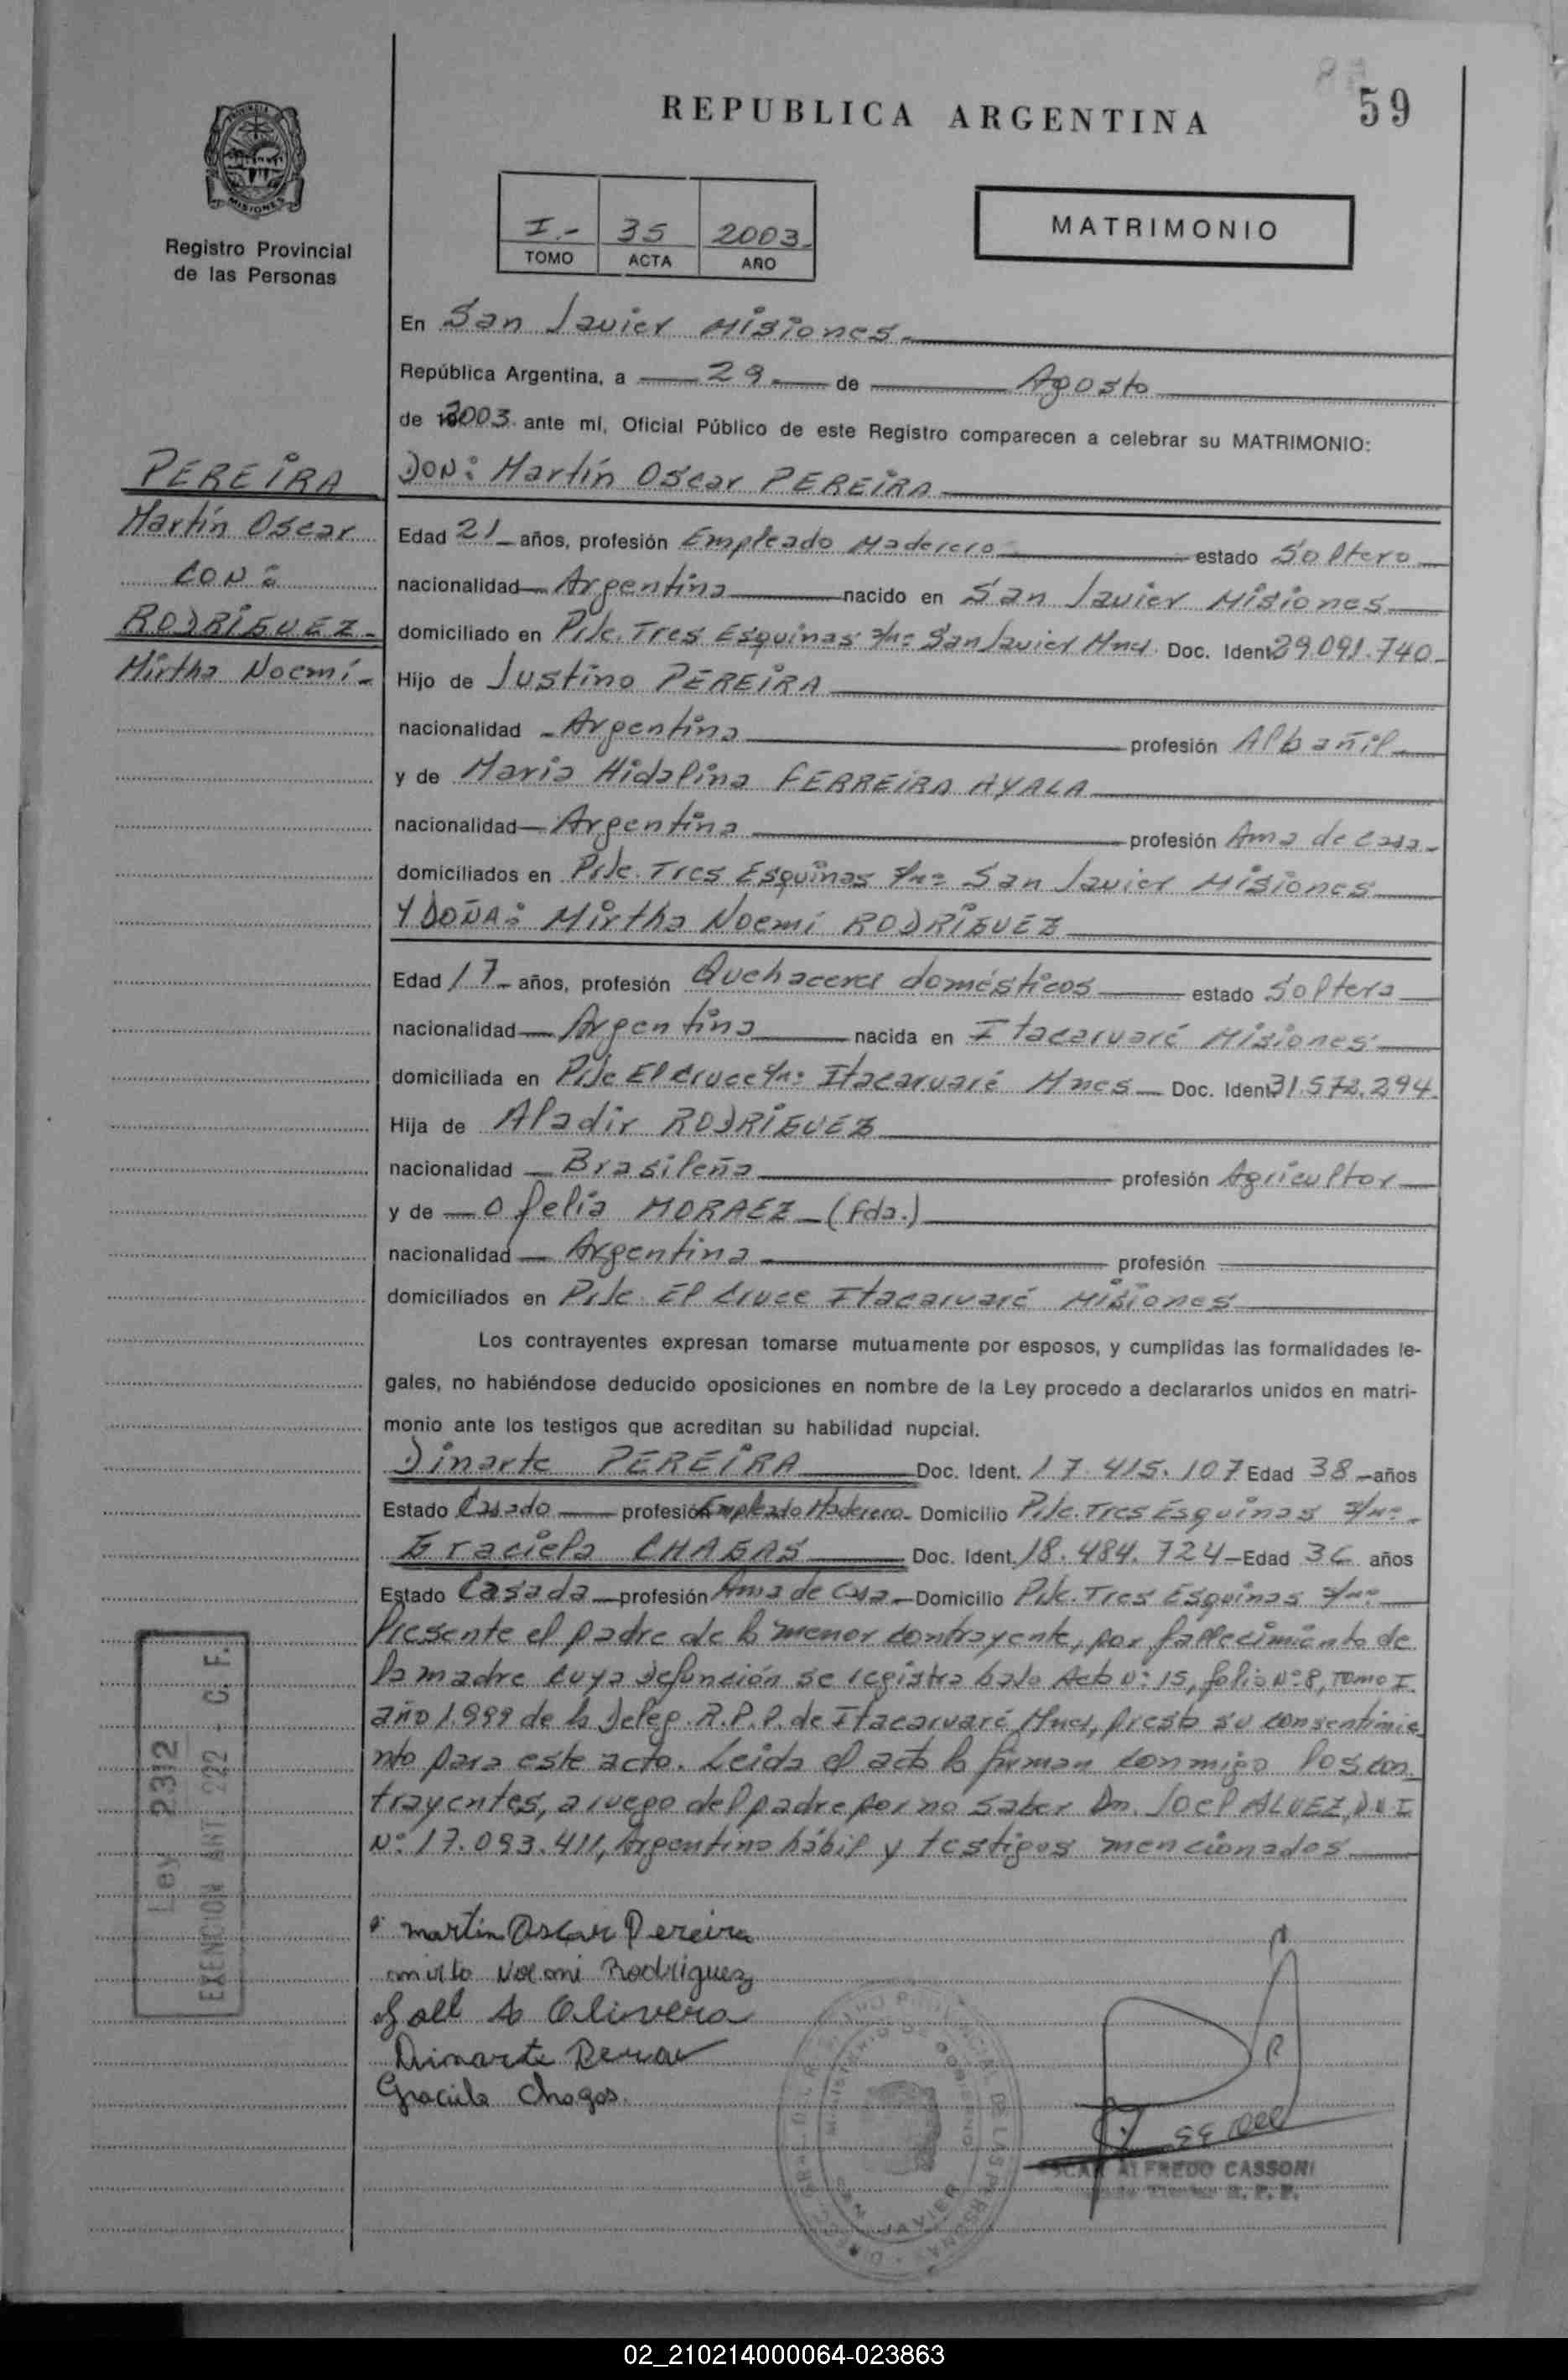 59
REPUBLICA ARGENTINA
PROVINCIA
MISIONES
Registro Provincial
de las Personas
I.- 35 2003.
TOMO ACTA AÑO
MATRIMONIO
En San Javier Misiones.
República Argentina, a 29 de Agosto
de 2003 ante mí, Oficial Público de este Registro comparecen a celebrar su MATRIMONIO:
PEREIRA
Martín Oscar
CON:
RODRÍGUEZ.
Mirtha Noemí.
DON: Martín Oscar PEREIRA
Edad 21 años, profesión Empleado Maderero estado Soltero
nacionalidad Argentina nacido en San Javier Misiones
domiciliado en Pje. Tres Esquinas s/nº San Javier Mnes. Doc. Ident. 29.091.740
Hijo de Justino PEREIRA
nacionalidad Argentina profesión Albañil
y de María Hidalina FERREIRA AYALA
nacionalidad Argentina profesión Ama de casa
domiciliados en Pje. Tres Esquinas s/nº San Javier Misiones
Y DOÑA: Mirtha Noemí RODRÍGUEZ
Edad 17 años, profesión Quehaceres domésticos estado Soltera
nacionalidad Argentina nacida en Itacaruaré Misiones
domiciliada en Pje El Cruce s/nº Itacaruaré Mnes Doc. Ident. 31.572.294.
Hija de Aladir RODRÍGUEZ
nacionalidad Brasileña profesión Agricultor
y de Ofelia MORAEZ (fda.)
nacionalidad Argentina profesión
domiciliados en Pje. El Cruce Itacaruaré Misiones
Los contrayentes expresan tomarse mutuamente por esposos, y cumplidas las formalidades le-
gales, no habiéndose deducido oposiciones en nombre de la Ley procedo a declararlos unidos en matri-
monio ante los testigos que acreditan su habilidad nupcial.
Dinarte PEREIRA Doc. Ident. 17.415.107 Edad 38 años
Estado Casado profesión Empleado Maderero. Domicilio Pje. Tres Esquinas s/nº.
Graciela CHAGAS Doc. Ident. 18.484.724 Edad 36 años
Estado Casada profesión Ama de Casa Domicilio Pje. Tres Esquinas s/nº
Presente el padre de la menor contrayente, por fallecimiento de
la madre cuya defunción se registra bajo Acta Nº 15, folio Nº 8, Tomo I.
año 1.999 de la Deleg. R.P.P. de Itacaruaré Mnes, presta su consentimie
nto para este acto. Leída el acta la firman conmigo los con-
trayentes, a ruego del padre por no saber Dn. Joel ALVEZ, D.N.I
Nº 17.093.411, Argentino hábil y testigos mencionados
Ley 2312
EXENCION ANT. 222 - C. F.
Martin Oscar Pereira
mirta Noemi Rodriguez
Olivera
Dinarte
Graciela Chagas.
SAN JAVIER
ALFREDO CASSONI
R. P. P.
02_210214000064-023863